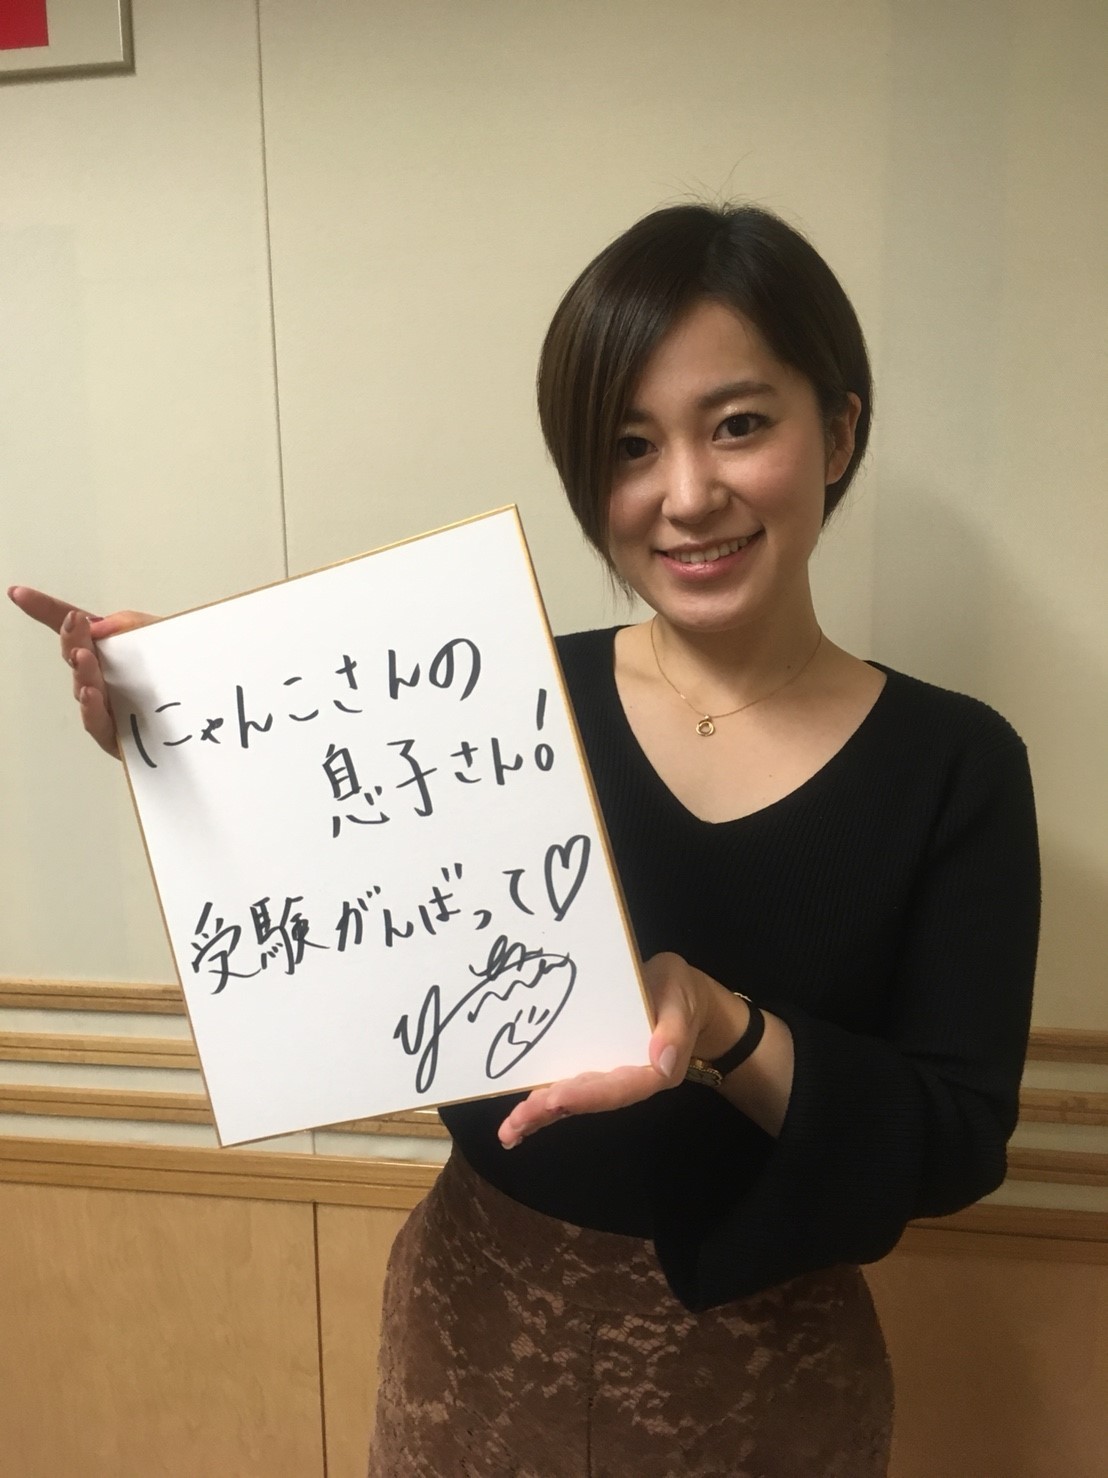 にゃんこさんの
息子さん!
受験がんばって♡